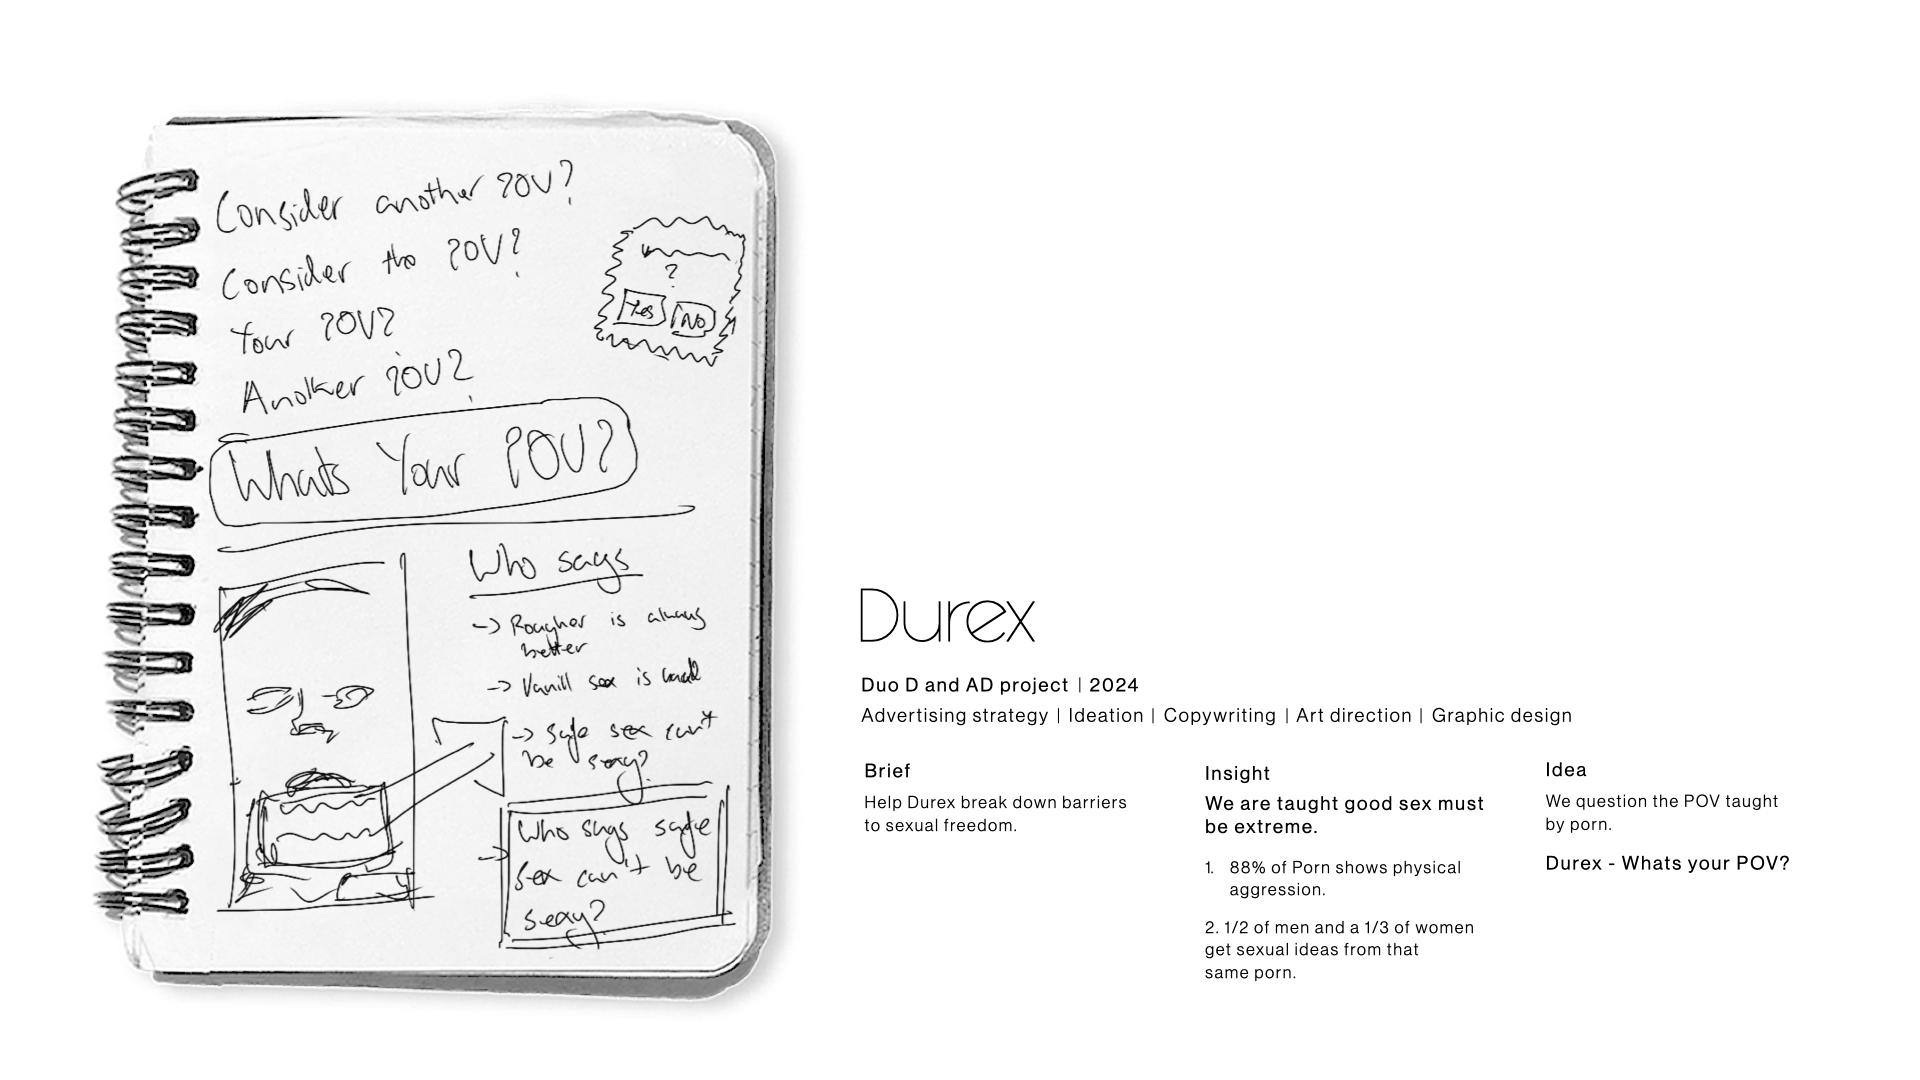 Consider another POV?
Consider the POV?
Your POV?
Another POV?
Whats Your POV?
?
Yes No
Who says
-> Rougher is always
better
-> Vanill sex is
-> Safe sex can't
be sexy?
-> Who says safe
sex can't be
sexy?
Durex
Duo D and AD project | 2024
Advertising strategy | Ideation | Copywriting | Art direction | Graphic design
Brief
Help Durex break down barriers
to sexual freedom.
Insight
We are taught good sex must
be extreme.
1. 88% of Porn shows physical
aggression.
2. 1/2 of men and a 1/3 of women
get sexual ideas from that
same porn.
Idea
We question the POV taught
by porn.
Durex - Whats your POV?